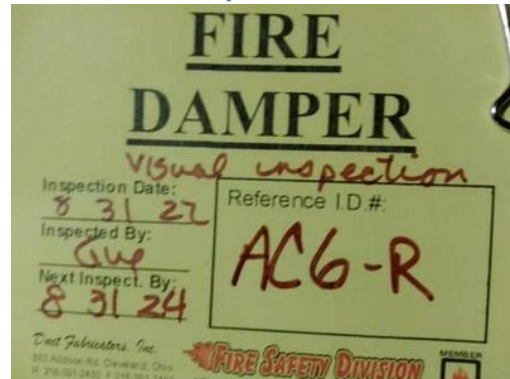 FIRE
DAMPER
Visual inspection
Inspection Date:
8 31 22
Inspected By:
Next Inspect. By:
8 31 24
Reference I.D.#:
AC6-R
Duct Fabricators, Inc.
Addison Rd. Cleveland, Ohio
FIRE SAFETY DIVISION
MEMBER